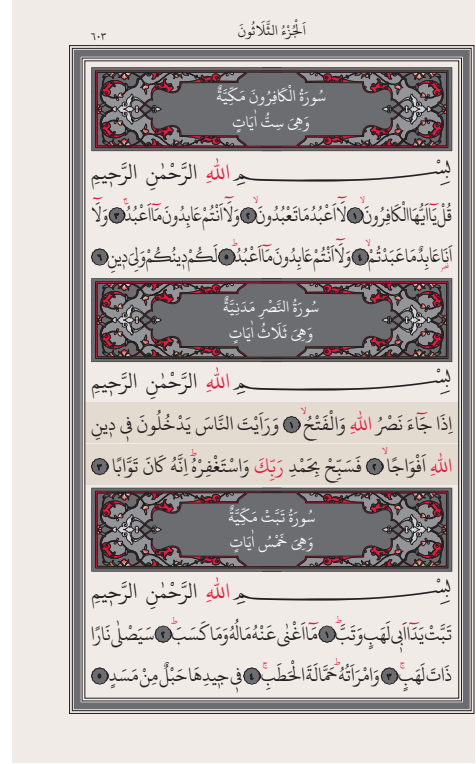 اَلْجُزْءُ الثَّلَاثُونَ
٦٠٣
سُورَةُ الْكَافِرُونَ مَكِّيَّةٌ
وَهِىَ سِتُّ اٰيَاتٍ
بِسْمِ اللّٰهِ الرَّحْمٰنِ الرَّحِيمِ
قُلْ يَٓا اَيُّهَا الْكَافِرُونَۙ ﴿١﴾ لَٓا اَعْبُدُ مَا تَعْبُدُونَۙ ﴿٢﴾ وَلَٓا اَنْتُمْ عَابِدُونَ مَٓا اَعْبُدُۚ ﴿٣﴾ وَلَٓا
اَنَا۬ عَابِدٌ مَا عَبَدْتُمْۙ ﴿٤﴾ وَلَٓا اَنْتُمْ عَابِدُونَ مَٓا اَعْبُدُۜ ﴿٥﴾ لَكُمْ دِينُكُمْ وَلِىَ دِينِ ﴿٦﴾
سُورَةُ النَّصْرِ مَدَنِيَّةٌ
وَهِىَ ثَلَاثُ اٰيَاتٍ
بِسْمِ اللّٰهِ الرَّحْمٰنِ الرَّحِيمِ
اِذَا جَٓاءَ نَصْرُ اللّٰهِ وَالْفَتْحُۙ ﴿١﴾ وَرَاَيْتَ النَّاسَ يَدْخُلُونَ فِى دِينِ
اللّٰهِ اَفْوَاجًاۙ ﴿٢﴾ فَسَبِّحْ بِحَمْدِ رَبِّكَ وَاسْتَغْفِرْهُۜ اِنَّهُ كَانَ تَوَّابًا ﴿٣﴾
سُورَةُ تَبَّتْ مَكِّيَّةٌ
وَهِىَ خَمْسُ اٰيَاتٍ
بِسْمِ اللّٰهِ الرَّحْمٰنِ الرَّحِيمِ
تَبَّتْ يَدَٓا اَبِى لَهَبٍ وَتَبَّۜ ﴿١﴾ مَٓا اَغْنٰى عَنْهُ مَالُهُ وَمَا كَسَبَۜ ﴿٢﴾ سَيَصْلٰى نَارًا
ذَاتَ لَهَبٍۚ ﴿٣﴾ وَامْرَاَتُهُۜ حَمَّالَةَ الْحَطَبِۚ ﴿٤﴾ فِى جِيدِهَا حَبْلٌ مِنْ مَسَدٍ ﴿٥﴾